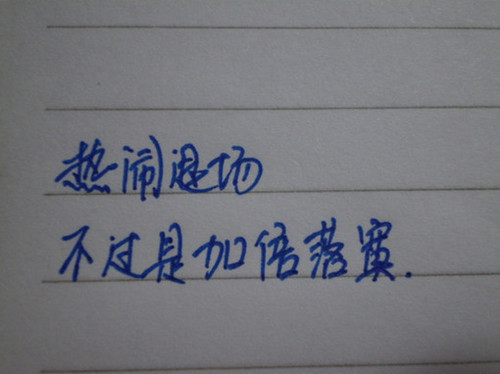 热闹退场
不过是加倍落寞.